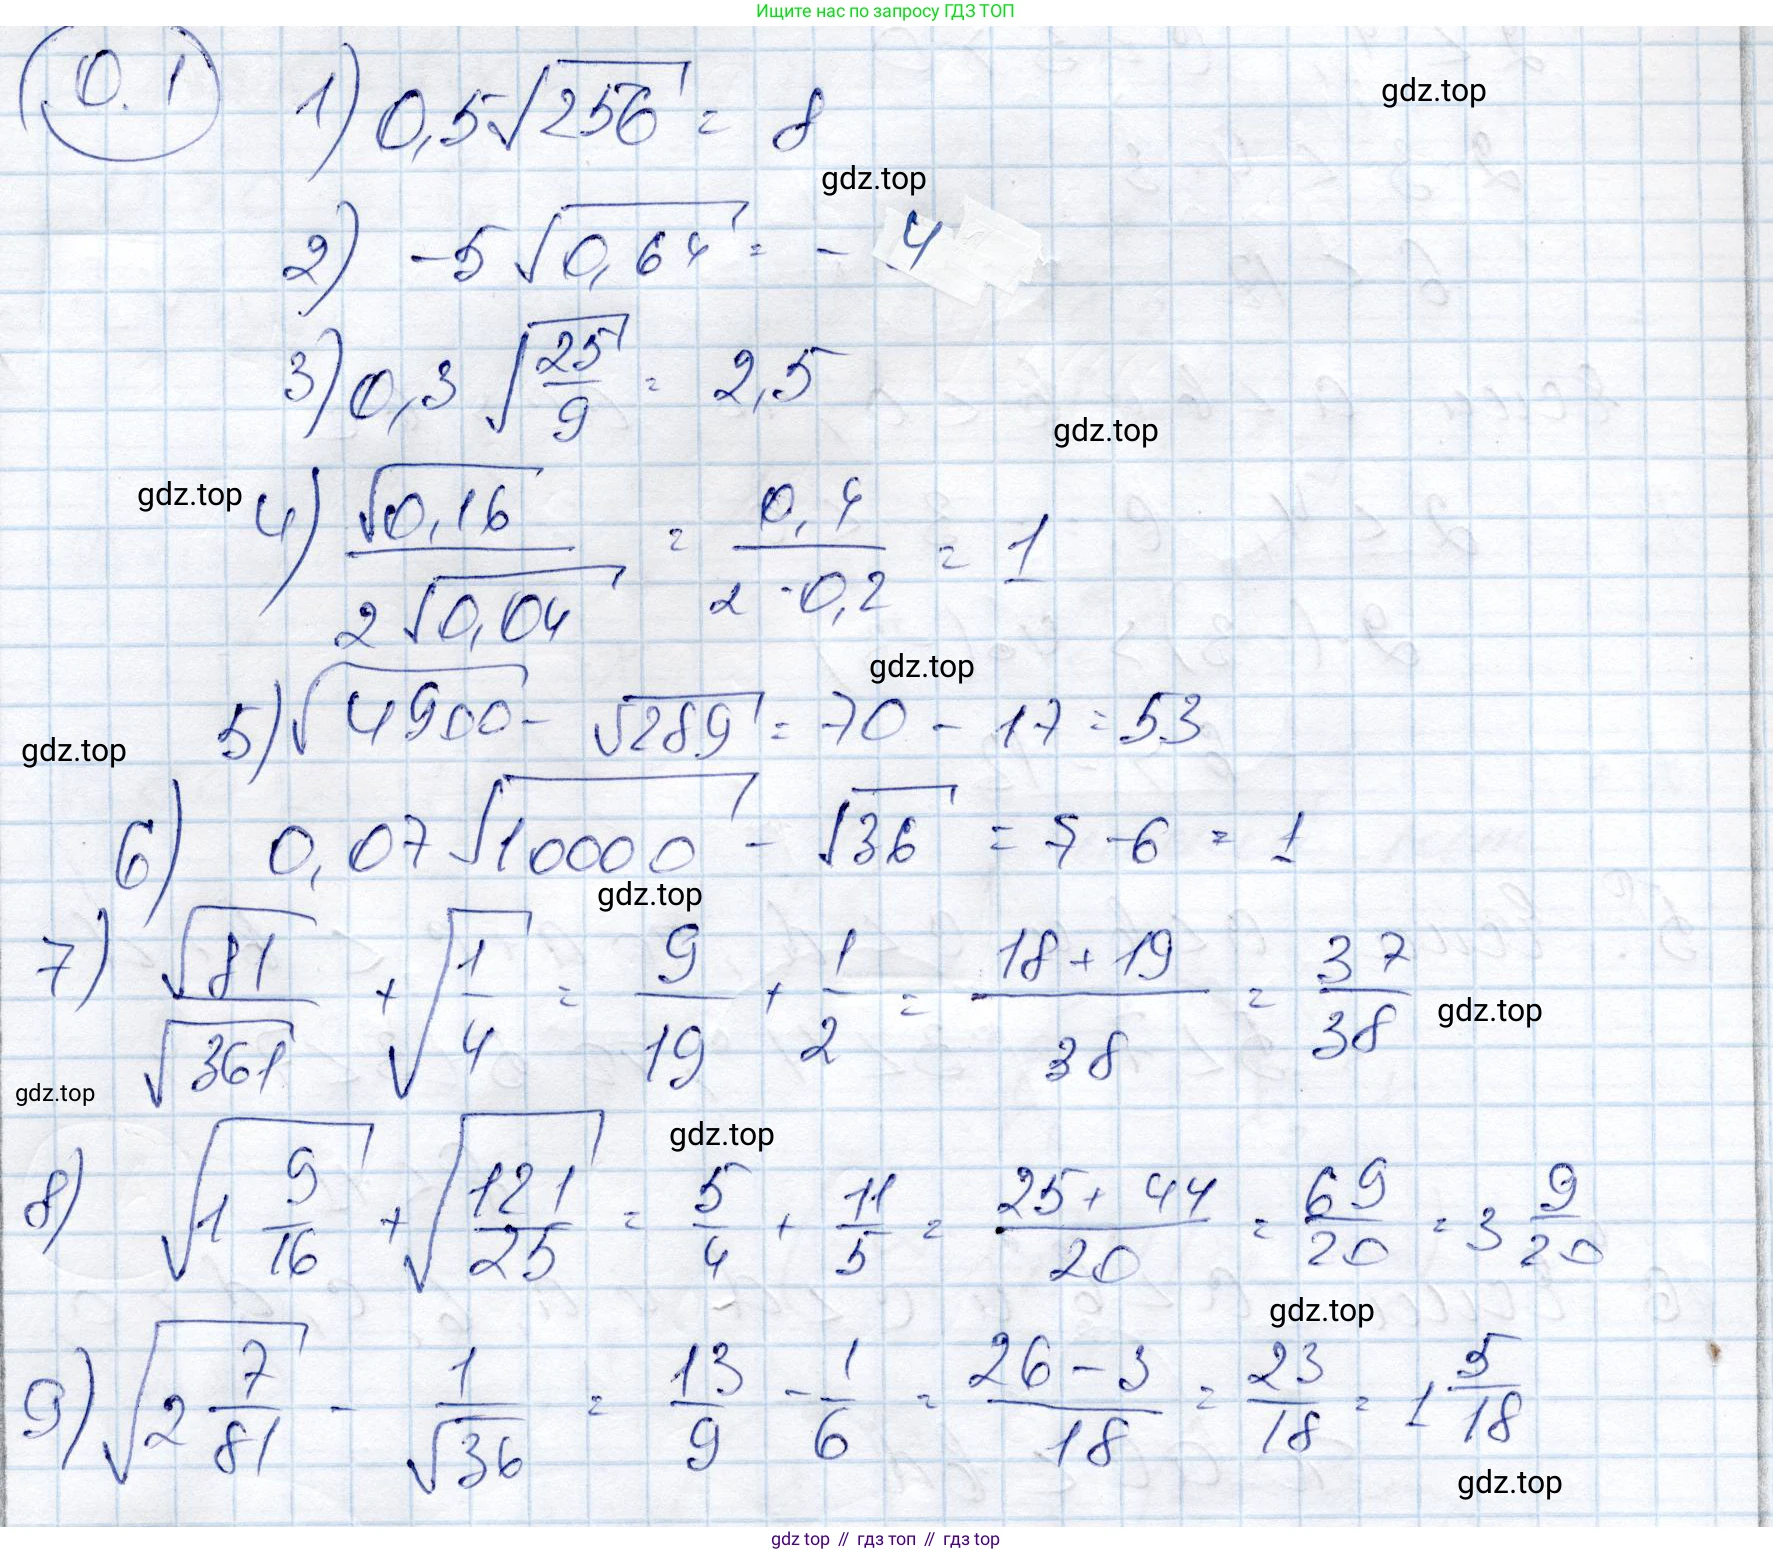 Ищите нас по запросу ГДЗ ТОП
0.1
1) 0,5√256 = 8
gdz.top
gdz.top
2) -5√0,64 = -4
3) 0,3 √(25/9) = 2,5
gdz.top
gdz.top
4) √0,16 / (2√0,04) = 0,4 / (2·0,2) = 1
gdz.top
5) √4900 - √289 = 70 - 17 = 53
gdz.top
6) 0,07√10000 - √36 = 7 - 6 = 1
gdz.top
7) √81/√361 + √(1/4) = 9/19 + 1/2 = (18+19)/38 = 37/38
gdz.top
gdz.top
gdz.top
8) √(1 9/16) + √(121/25) = 5/4 + 11/5 = (25+44)/20 = 69/20 = 3 9/20
gdz.top
9) √(2 7/81) - 1/√36 = 13/9 - 1/6 = (26-3)/18 = 23/18 = 1 5/18
gdz.top
gdz top // гдз топ // гдз top